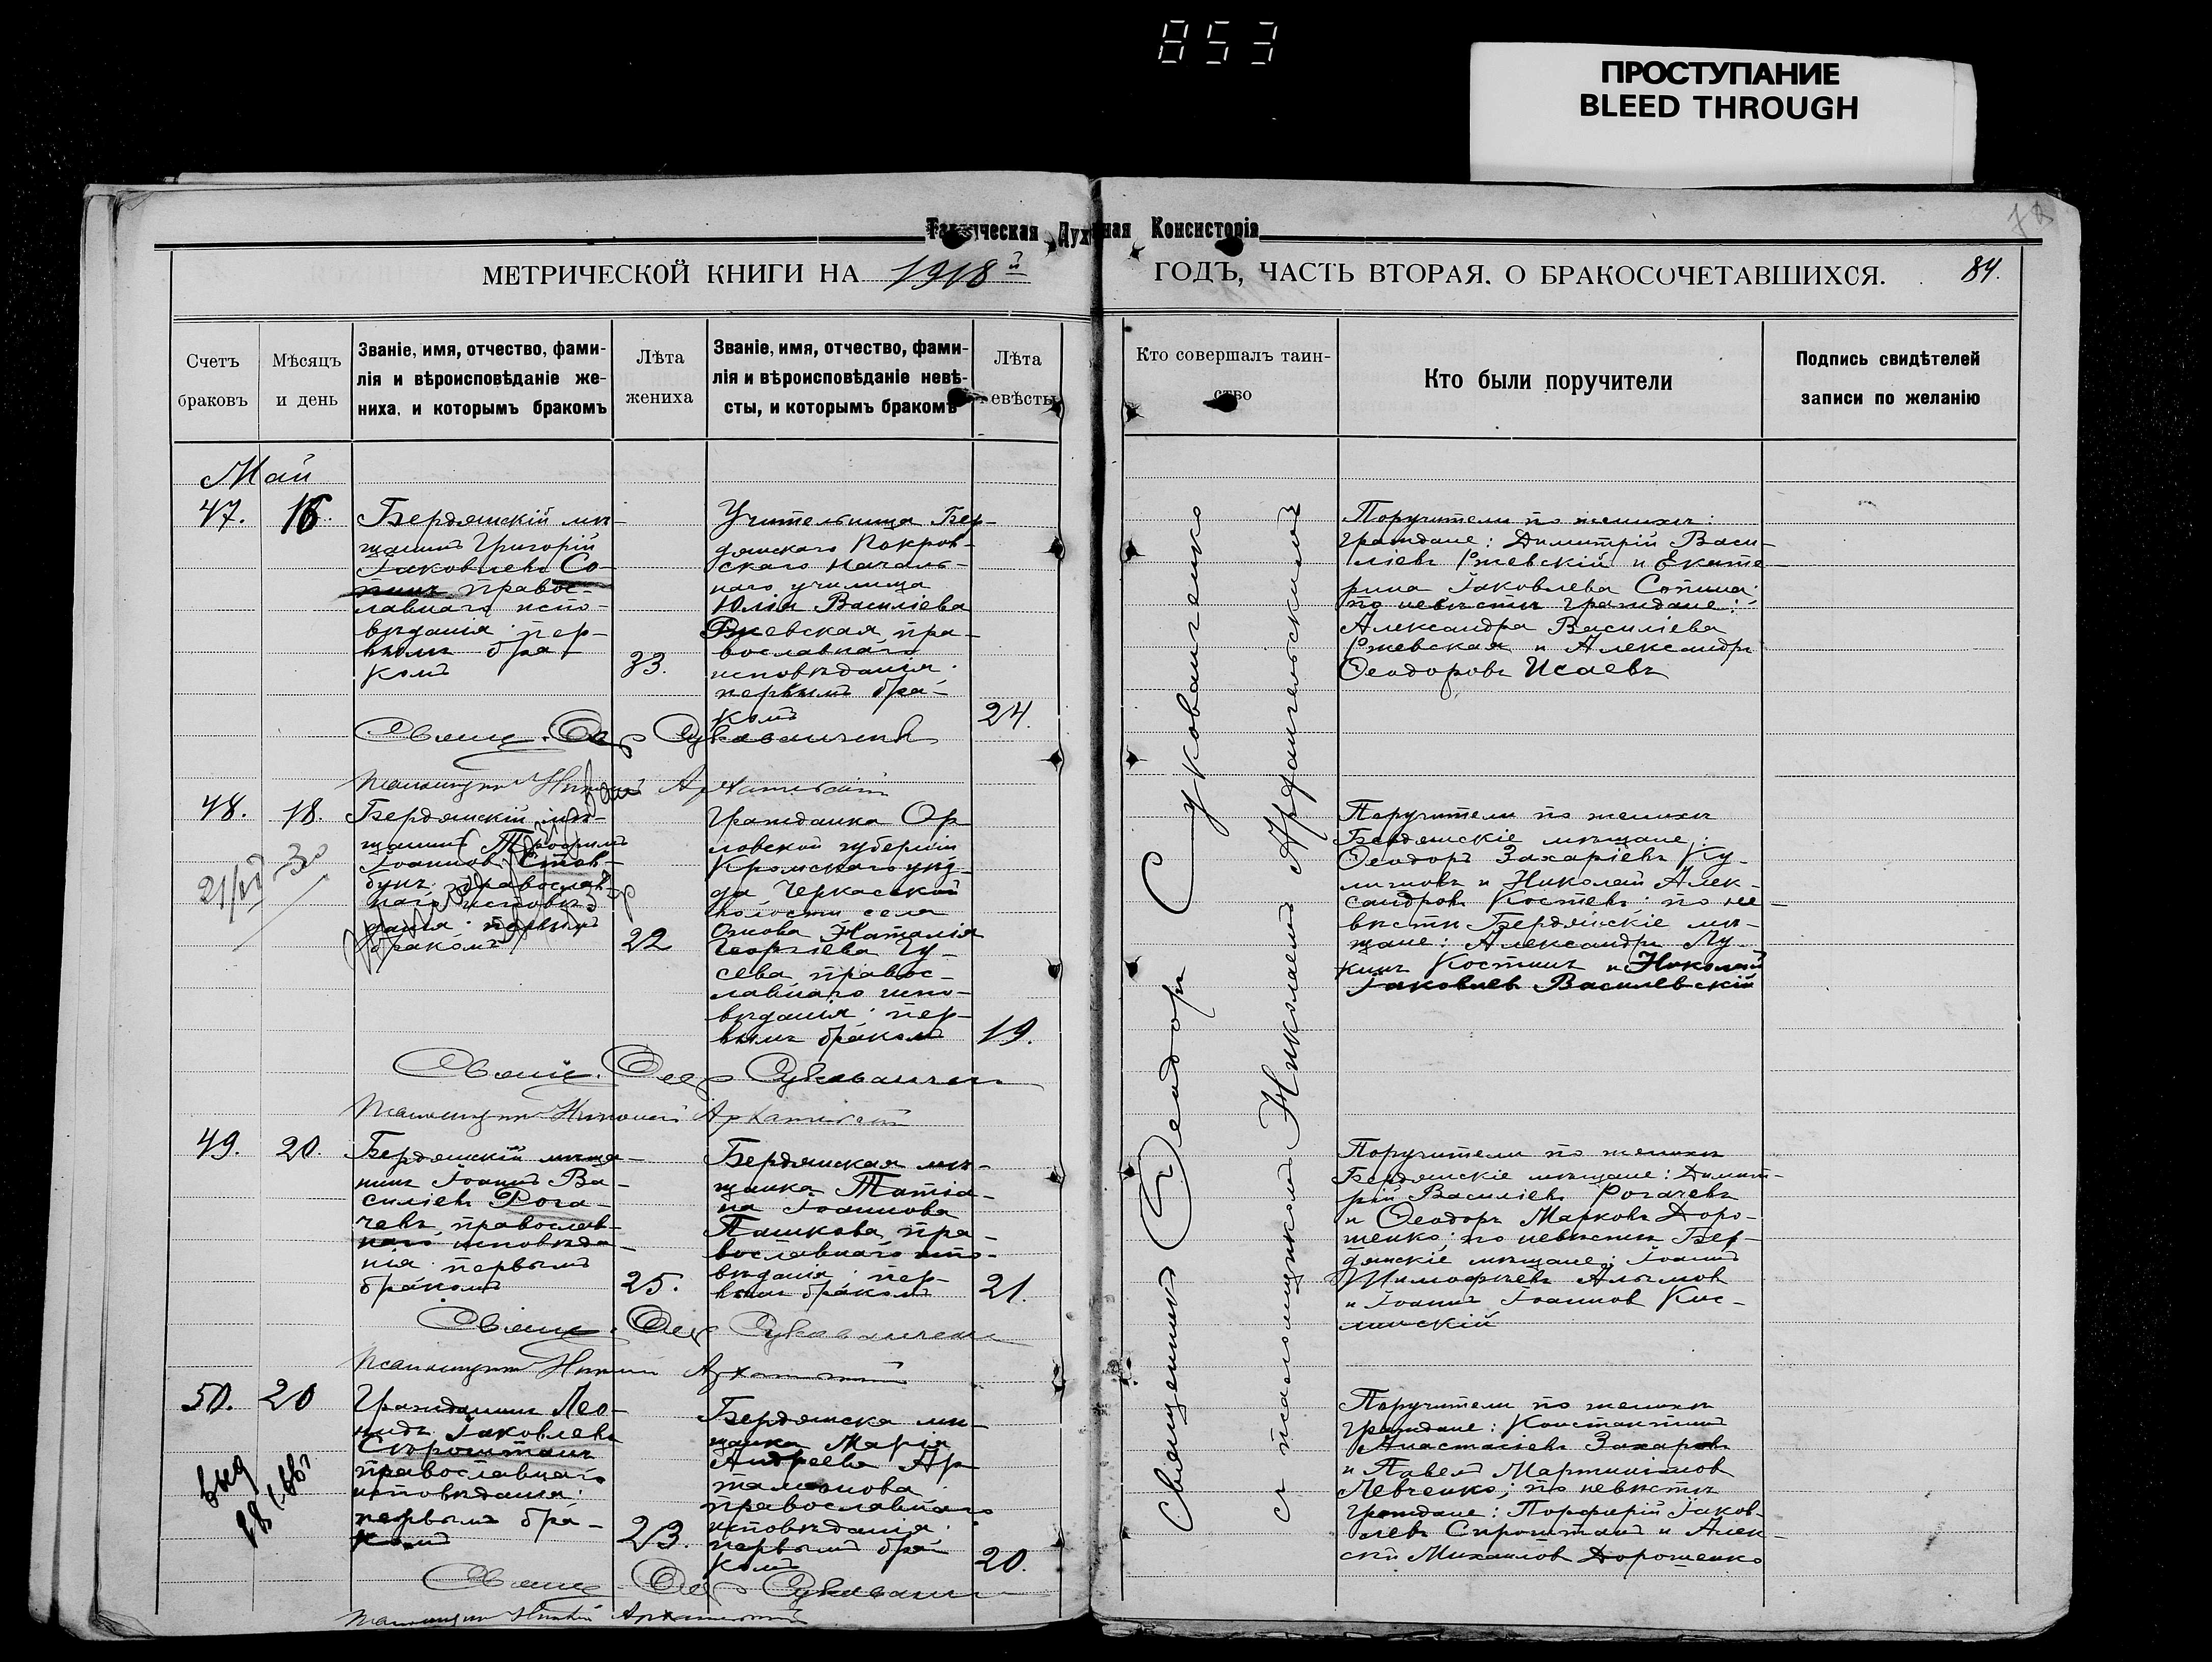 853
ПРОСТУПАНИЕ
BLEED THROUGH
Таврическая Духовная Консисторія
МЕТРИЧЕСКОЙ КНИГИ НА 1918й
ГОДЪ, ЧАСТЬ ВТОРАЯ, О БРАКОСОЧЕТАВШИХСЯ. 84.
Счетъ
браковъ
Мѣсяцъ
и день
Званіе, имя, отчество, фами-
лія и вѣроисповѣданіе же-
ниха, и которымъ бракомъ
Лѣта
жениха
Званіе, имя, отчество, фами-
лія и вѣроисповѣданіе невѣ-
сты, и которымъ бракомъ
Лѣта
невѣсты
Кто совершалъ таин-
ство
Кто были поручители
Подпись свидѣтелей
записи по желанію
Май
47.
16.
Бердянскій мѣ-
щанинъ Григорій
Іаковлевъ Со-
пинъ правос-
лавнаго испо-
вѣданія: пер-
вымъ бра-
комъ
33.
Учительница Бер-
дянскаго Покров-
скаго началь-
наго училища
Юлія Василіева
Ржевская, пра-
вославнаго
исповѣданія:
первымъ бра-
комъ
24.
Поручители по женихѣ:
Граждане: Димитрій Васи-
ліевъ Ржевскій и Екате-
рина Іаковлева Сопина:
по невѣстѣ граждане:
Александра Василіева
Ржевская и Александръ
Ѳеодоровъ Исаевъ
Свящ. Ѳео Сукованченко
Псаломщикъ Николай Архангельскій
48.
18.
Бердянскій мѣ-
щанинъ Трофимъ
Іоанновъ Стов-
бунъ: православ-
наго исповѣ-
данія: первымъ
бракомъ
22
Гражданка Ор-
ловской губерніи
Кромскаго уѣз-
да Черкасской
волости села
Наталія
Георгіева Гу-
сева правос-
лавнаго испо-
вѣданія: пер-
вымъ бракомъ
19.
Поручители по женихѣ
Бердянскіе мѣщане:
Ѳеодоръ Захаріевъ Ку-
и Николай Алек-
сандровъ Костевъ: по не-
вѣстѣ Бердянскіе мѣ-
щане: Александръ Лу-
кинъ Костинъ и Николай
Іаковлевъ Василевскій
Свящ. Ѳео Сукованченко
Псаломщикъ Николай Архангельскій
49.
20.
Бердянскій мѣща-
нинъ Іоаннъ Ва-
силіевъ Рога-
чевъ православ-
наго исповѣда-
нія: первымъ
бракомъ
25.
Бердянская мѣ-
щанка Татіа-
на Іоаннова
Пашкова, пра-
вославнаго испо-
вѣданія: пер-
вымъ бракомъ
21.
Поручители по женихѣ
Бердянскіе мѣщане: Димит-
рій Василіевъ Рогачевъ
и Ѳеодоръ Марковъ Доро-
шенко; по невѣстѣ Бер-
дянскіе мѣщане: Іоаннъ
Тимофѣевъ Алымов
и Іоаннъ Іоаннов Кис-
линскій
Свящ. Ѳео Сукованченко
Псаломщикъ Николай Архангельскій
50.
20
Гражданинъ Лео-
нидъ Іаковлевъ
Сѣроштанъ
православнаго
исповѣданія:
первымъ бра-
комъ
23.
Бердянска мѣ-
щанка Марія
Андреева Ар-
тамонова
православнаго
исповѣданія:
первымъ бра-
комъ
20.
Поручители по женихѣ
граждане: Константинъ
Анастасіевъ Захаровъ
и Павелъ Мартиніанов
Левченко; по невѣстѣ
граждане: Порфирій Іаков-
левъ Сироштанъ и Алек-
сѣй Михаилов Дорошенко
Свящ. Ѳео Сукованченко
Псаломщикъ Николай Архангельскій
Священникъ Ѳеодоръ Сукованченко
съ псаломщикомъ Николаемъ Архангельскимъ